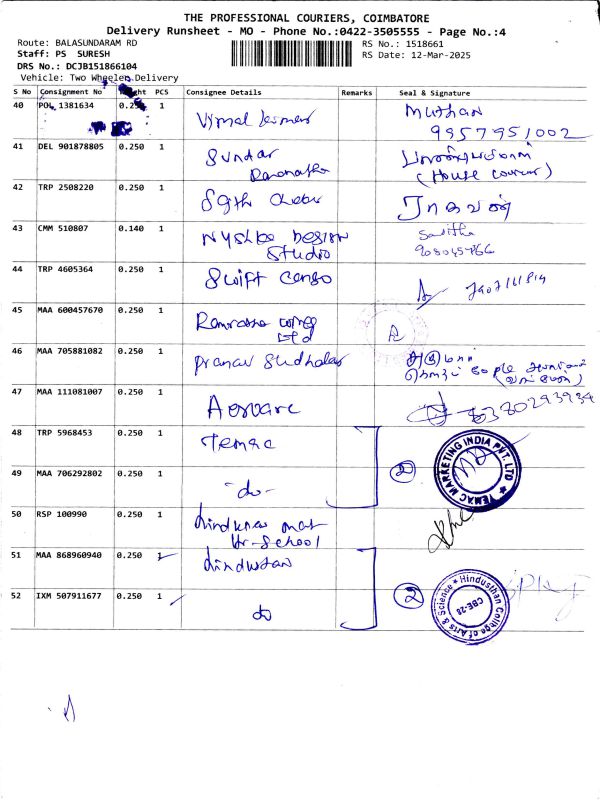 THE PROFESSIONAL COURIERS, COIMBATORE
Delivery Runsheet - MO - Phone No.:0422-3505555 - Page No.:4
Route: BALASUNDARAM RD
RS No.: 1518661
Staff: PS SURESH
RS Date: 12-Mar-2025
DRS No.: DCJB151866104
Vehicle: Two Wheeler Delivery
S No Consignment No PCS Consignee Details Remarks Seal & Signature
40 POL 1381634 1 Muthan
9957951002
41 DEL 901878805 0.250 1 Sundar
(House
42 TRP 2508220 0.250 1 ராகவன்
43 CMM 510807 0.140 1 DESIGN Savitha
STUDIO
44 TRP 4605364 0.250 1 Swift Cargo
45 MAA 600457670 0.250 1
46 MAA 705881082 0.250 1 Pranav
47 MAA 111081007 0.250 1 6380293934
48 TRP 5968453 0.250 1 Temac 2
TEMAC MARKETING INDIA PVT. LTD
49 MAA 706292802 0.250 1 -do-
50 RSP 100990 0.250 1
Hr-School
51 MAA 868960940 0.250 1 Hindustan
52 IXM 507911677 0.250 1 do 2
Hindusthan College of Arts & Science
CBE-28